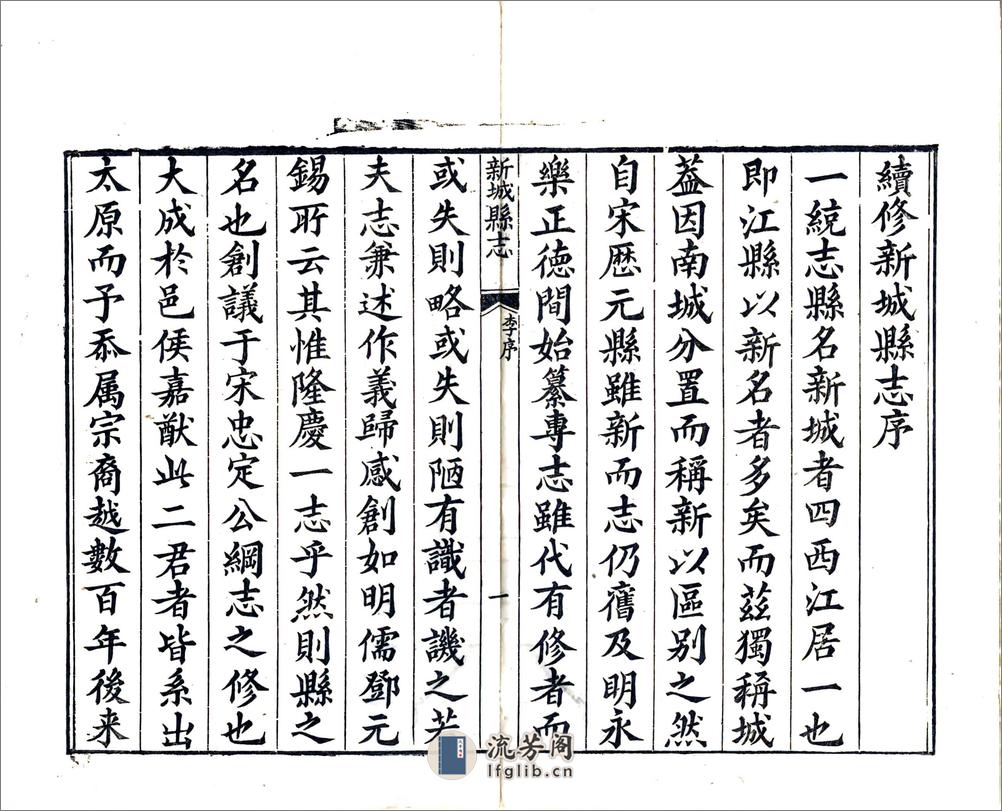 續修新城縣志序
一統志縣名新城者四西江居一也
即江縣以新名者多矣而茲獨稱城
葢因南城分置而稱新以區别之然
自宋歷元縣雖新而志仍舊及明永
樂正德間始纂專志雖代有修者而
新城縣志
李序
一
或失則略或失則陋有識者譏之若
夫志兼述作義歸感創如明儒鄧元
錫所云其惟隆慶一志乎然則縣之
名也創議于宋忠定公綱志之修也
大成於邑侯嘉猷此二君者皆系出
太原而予忝属宗裔越數百年後来
流芳阁
lfglib.cn